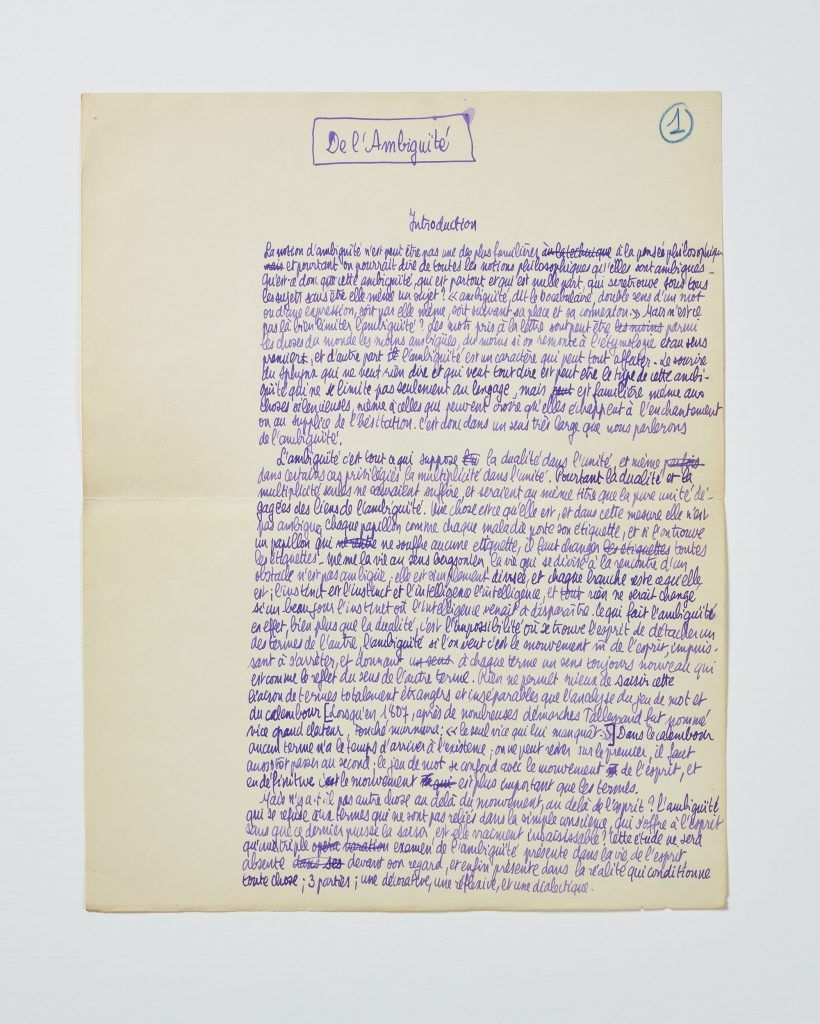 De l'Ambiguïté
1
Introduction
La notion d'ambiguïté n'est peut être pas une des plus familières à la technique à la pensée philosophique
mais et pourtant on pourrait dire de toutes les notions philosophiques qu'elles sont ambigues -
qu'est ce donc que cette ambiguité, qui est partout et qui est nulle part, qui se retrouve sous tous
les sujets sans être elle même un sujet? « ambiguité, dit le vocabulaire, double sens d'un mot
ou d'une expression, soit par elle même, soit suivant sa place et sa connexion. » Mais n'est ce
pas là bien limiter l'ambiguité? des mots pris à la lettre sont peut être les moins parmi
les choses du monde les moins ambigües, du moins si on remonte à l'étymologie et au sens
premiers, et d'autre part l'ambiguïté est un caractère qui peut tout affecter - Le sourire
du sphynx qui ne veut rien dire et qui veut tout dire est peut être le type de cette ambi-
guité qui ne se limite pas seulement au langage, mais peut est familière même aux
choses silencieuses, même à celles qui peuvent croire qu'elles échappent à l'enchantement
ou au supplice de l'hésitation. C'est donc dans un sens très large que nous parlerons
de l'ambiguité.
L'ambiguité c'est tout ce qui suppose la dualité dans l'unité, et même parfois
dans certains cas privilégiés la multiplicité dans l'unité. Pourtant la dualité et la
multiplicité seules ne sauraient suffire, et seraient au même titre que la pure unité dé-
gagées des liens de l'ambiguité. Une chose est ce qu'elle est, et dans cette mesure elle n'est
pas ambigue, chaque papillon comme chaque maladie porte son étiquette, et si l'on trouve
un papillon qui ne souffre aucune etiquette, il faut changer les étiquettes toutes
les étiquettes - même la vie au sens bergsonien, la vie qui se divise à la rencontre d'un
obstacle n'est pas ambigüe; elle est simplement divisée, et chaque branche reste ce qu'elle
est; l'instinct est l'instinct et l'intelligence l'intelligence, et tout rien ne serait changé
si un beau jour l'instinct où l'intelligence venait à disparaître. Ce qui fait l'ambiguité
en effet, bien plus que la dualité, c'est l'impossibilité où se trouve l'esprit de détacher un
des termes de l'autre, l'ambiguité si l'on veut c'est le mouvement m̄ de l'esprit, impuis-
sant à s'arrêter, et donnant un sens à chaque terme un sens toujours nouveau qui
est comme le reflet du sens de l'autre terme. Rien ne permet mieux de saisir cette
liaison de termes totalement étrangers et inséparables que l'analyse du jeu de mot et
du calembour [Lorsqu'en 1807, après de nombreuses démarches Talleyrand fut nommé
vice grand électeur, Fouché murmura; « le seul vice qui lui manquât. »] Dans le calembour
aucun terme n'a le temps d'arriver à l'existence; on ne peut rester sur le premier, il faut
aussitôt passer au second; le jeu de mot se confond avec le mouvement m̄ de l'esprit, et
en définitive c'est le mouvement m̄ qui est plus important que les termes.
Mais n'y a-t-il pas autre chose au delà du mouvement, au delà de l'esprit? l'ambiguité
qui se refuse aux termes qui ne sont pas reliés dans la simple conscience, qui s'offre à l'esprit
sans que ce dernier puisse la saisir est elle vraiment insaisissable? Cette étude ne sera
qu'un triple examen de l'ambiguité présente dans la vie de l'esprit
absente dans ses devant son regard, et enfin présente dans la réalité qui conditionne
toute chose; 3 parties; une décorative, une réflexive, et une dialectique.